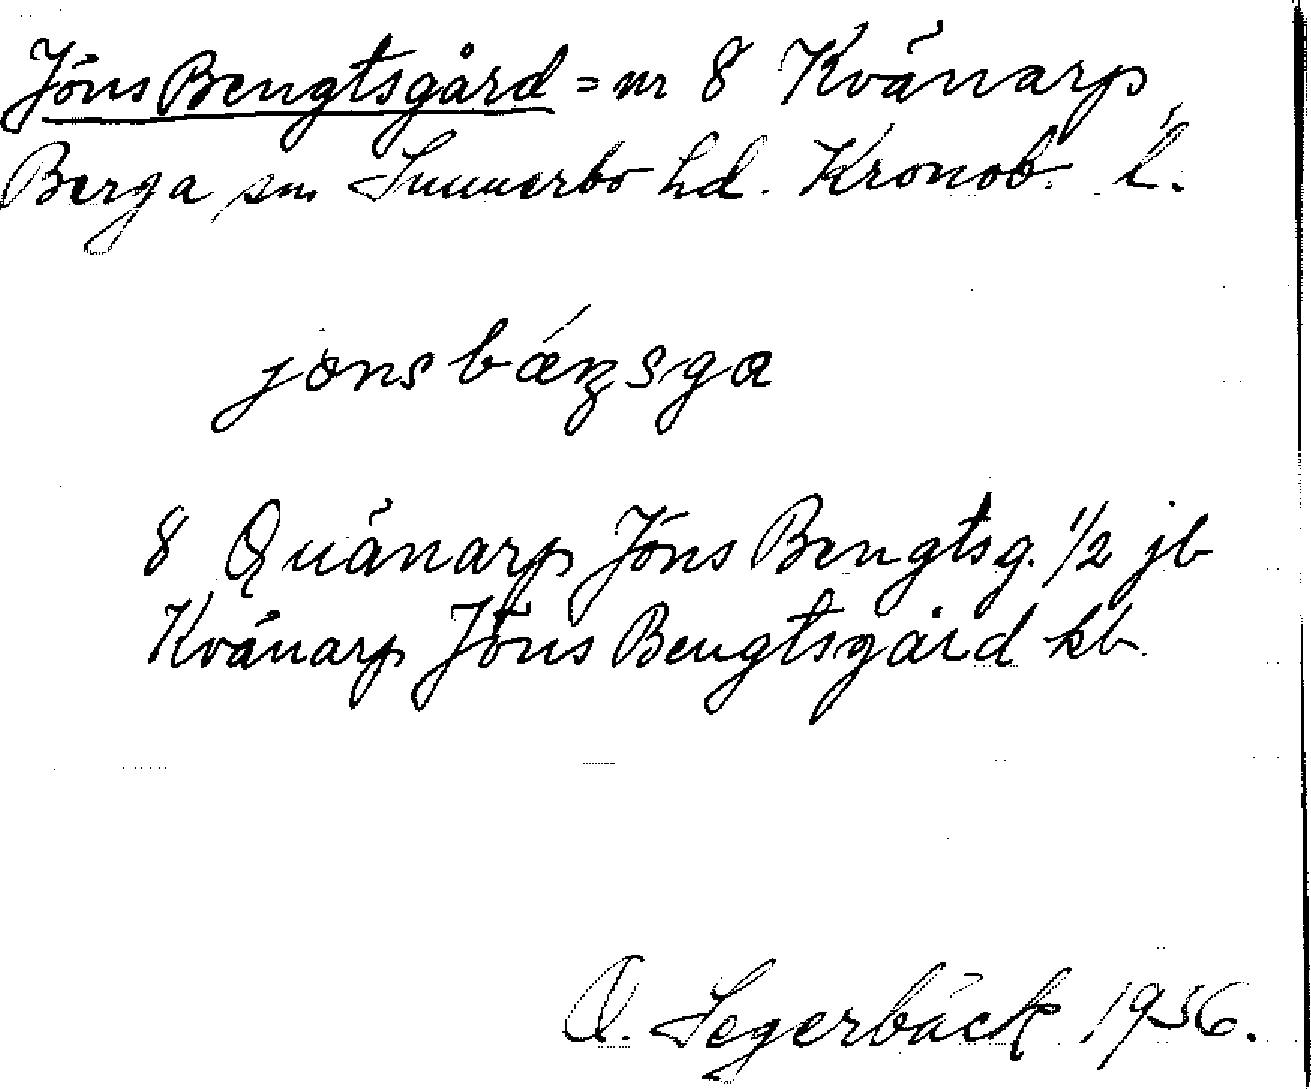 Jöns Bengtsgård = nr 8 Kvänarp,
Berga sn. Sunnerbo hd. Kronob. l.
8 Quänarp Jöns Bengtsg. 1/2 jb
Kvänarp Jöns Bengtsgård kb.
Segerbäck 1956.